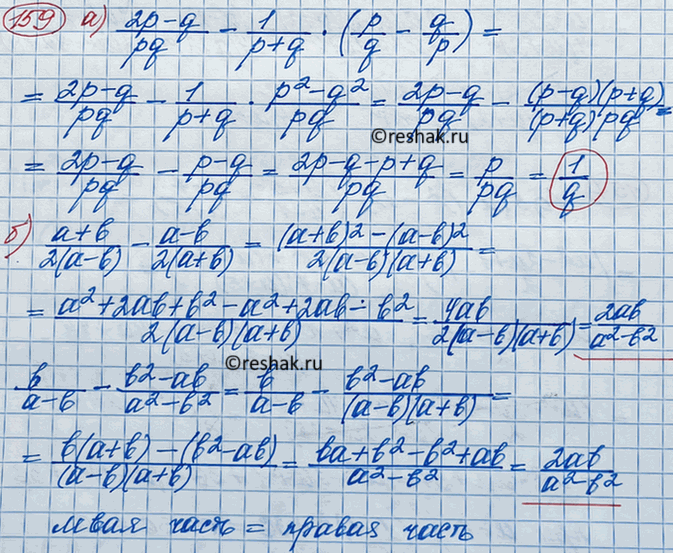 159 а) (2p-q)/pq - 1/(p+q) · (p/q - q/p) =
= (2p-q)/pq - 1/(p+q) · (p²-q²)/pq = (2p-q)/pq - (p-q)(p+q)/(p+q)pq =
©reshak.ru
= (2p-q)/pq - (p-q)/pq = (2p-q-p+q)/pq = p/pq = 1/q
б) (a+b)/2(a-b) - (a-b)/2(a+b) = ((a+b)²-(a-b)²)/2(a-b)(a+b) =
= (a²+2ab+b²-a²+2ab-b²)/2(a-b)(a+b) = 4ab/2(a-b)(a+b) = 2ab/(a²-b²)
©reshak.ru
b/(a-b) - (b²-ab)/(a²-b²) = b/(a-b) - (b²-ab)/(a-b)(a+b) =
= (b(a+b)-(b²-ab))/(a-b)(a+b) = (ba+b²-b²+ab)/(a²-b²) = 2ab/(a²-b²)
левая часть = правая часть